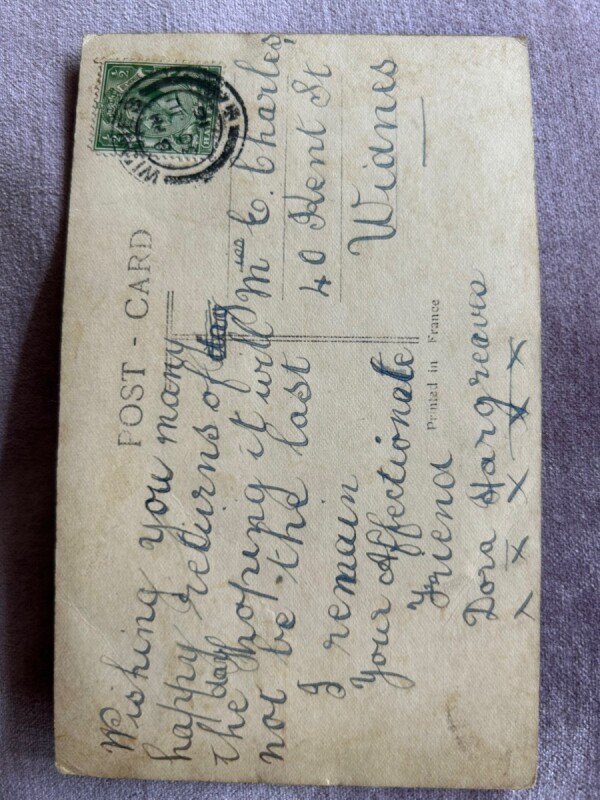 POST - CARD
Wishing you many
happy returns of
the day hoping it will
not be the last
I remain
Your Affectionate
Friend
Dora Hargreavs
x x x x x
Miss E. Charles,
40 Kent St
Widnes
Printed in France
WIDNES